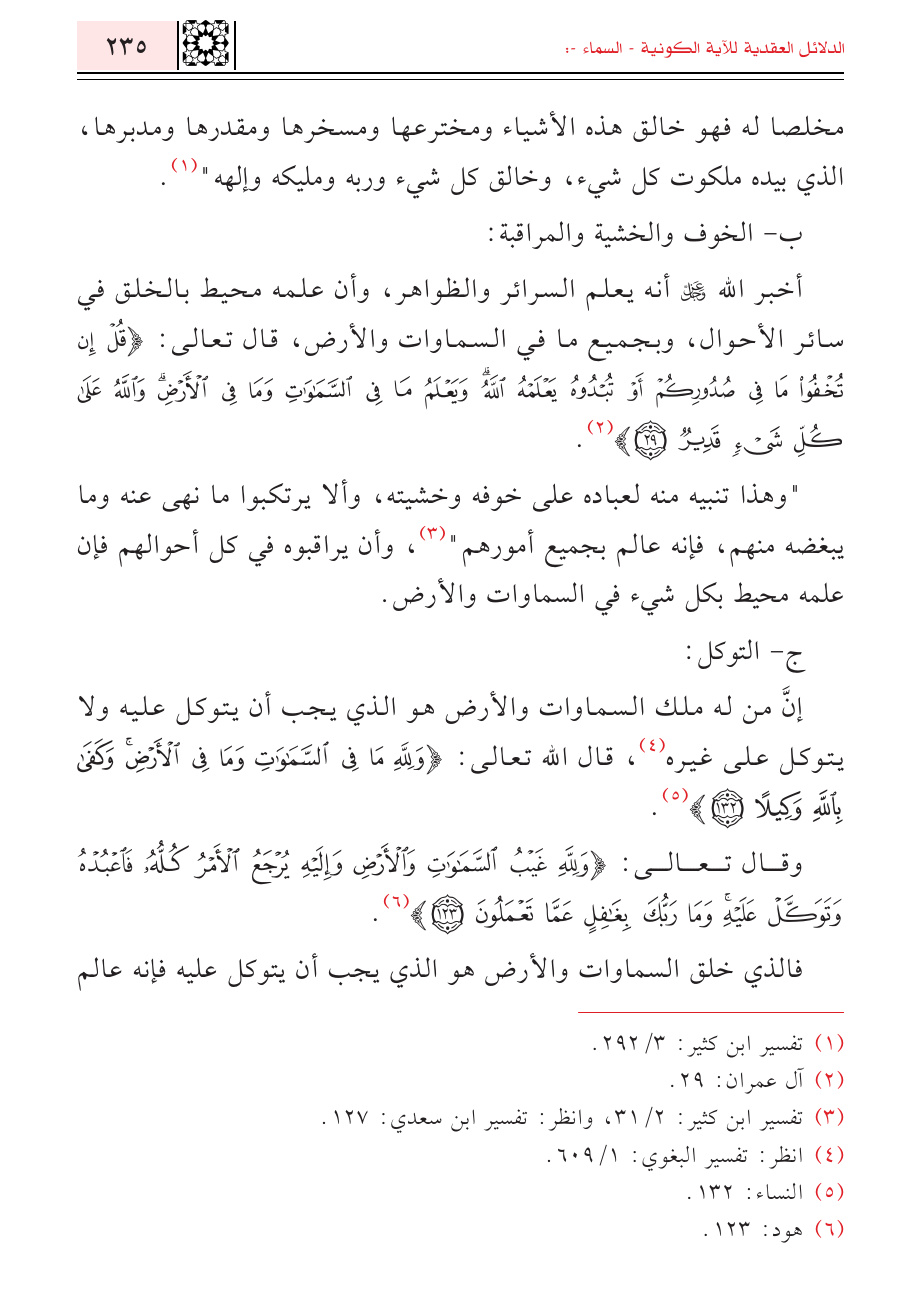 الدلائل العقدية للآية الكونية - السماء -:
٢٣٥
مخلصا له فهو خالق هذه الأشياء ومخترعها ومسخرها ومقدرها ومدبرها،
الذي بيده ملكوت كل شيء، وخالق كل شيء وربه ومليكه وإلهه"(١).
ب- الخوف والخشية والمراقبة:
أخبر الله ﷿ أنه يعلم السرائر والظواهر، وأن علمه محيط بالخلق في
سائر الأحوال، وبجميع ما في السماوات والأرض، قال تعالى: ﴿قُلْ إِن
تُخْفُوا۟ مَا فِى صُدُورِكُمْ أَوْ تُبْدُوهُ يَعْلَمْهُ ٱللَّهُ ۗ وَيَعْلَمُ مَا فِى ٱلسَّمَـٰوَٰتِ وَمَا فِى ٱلْأَرْضِ ۗ وَٱللَّهُ عَلَىٰ
كُلِّ شَىْءٍ قَدِيرٌ ٢٩﴾(٢).
"وهذا تنبيه منه لعباده على خوفه وخشيته، وألا يرتكبوا ما نهى عنه وما
يبغضه منهم، فإنه عالم بجميع أمورهم"(٣)، وأن يراقبوه في كل أحوالهم فإن
علمه محيط بكل شيء في السماوات والأرض.
ج- التوكل:
إنَّ من له ملك السماوات والأرض هو الذي يجب أن يتوكل عليه ولا
يتوكل على غيره(٤)، قال الله تعالى: ﴿وَلِلَّهِ مَا فِى ٱلسَّمَـٰوَٰتِ وَمَا فِى ٱلْأَرْضِ ۚ وَكَفَىٰ
بِٱللَّهِ وَكِيلًا ١٣٢﴾(٥).
وقال تعالى: ﴿وَلِلَّهِ غَيْبُ ٱلسَّمَـٰوَٰتِ وَٱلْأَرْضِ وَإِلَيْهِ يُرْجَعُ ٱلْأَمْرُ كُلُّهُۥ فَٱعْبُدْهُ
وَتَوَكَّلْ عَلَيْهِ ۚ وَمَا رَبُّكَ بِغَـٰفِلٍ عَمَّا تَعْمَلُونَ ١٢٣﴾(٦).
فالذي خلق السماوات والأرض هو الذي يجب أن يتوكل عليه فإنه عالم
(١) تفسير ابن كثير: ٣/ ٢٩٢.
(٢) آل عمران: ٢٩.
(٣) تفسير ابن كثير: ٢/ ٣١، وانظر: تفسير ابن سعدي: ١٢٧.
(٤) انظر: تفسير البغوي: ١/ ٦٠٩.
(٥) النساء: ١٣٢.
(٦) هود: ١٢٣.